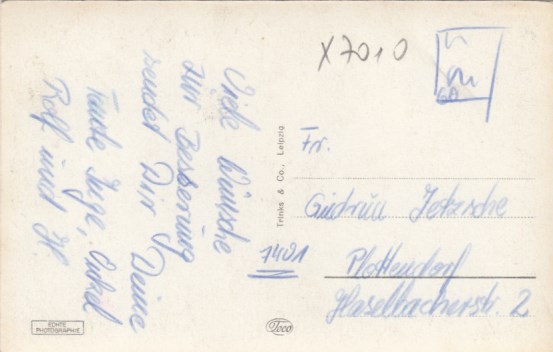 Viele Wünsche
zur Besserung
sendet Dir Deine
Tante Inge, Onkel
Rolf und H.
X7010
Fr.
Gudrun Jetzsche
7401
Plottendorf
Haselbacherstr. 2
Trinks & Co., Leipzig
ECHTE
PHOTOGRAPHIE
Teco